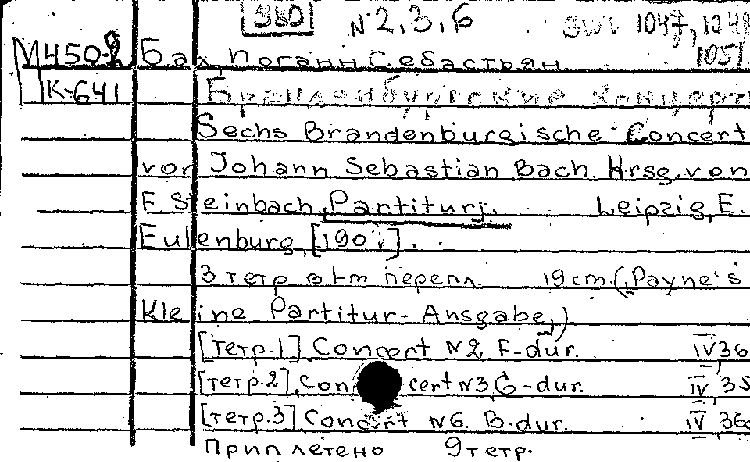 ЭЮ N2,3,6 BWV 1047, 1048
М450-2 Бах Иоганн Себастьян 1051
К-641 Бранденбургские концерты
Sechs Brandenburgische Concert
von Johann Sebastian Bach Hrsg. von
F. Steinbach, Partitur. Leipzig, E.
Eulenburg, [190
3 тетр в 1-м перепл 19 cm. (Payne's
Kleine Partitur-Ansgabe,)
[тетр.1] Concert N2, F-dur. IV, 36
[тетр.2], Concert N3, G-dur. IV, 35
[тетр.3] Concert N6. B-dur. IV, 36
Приплетено 9 тетр.